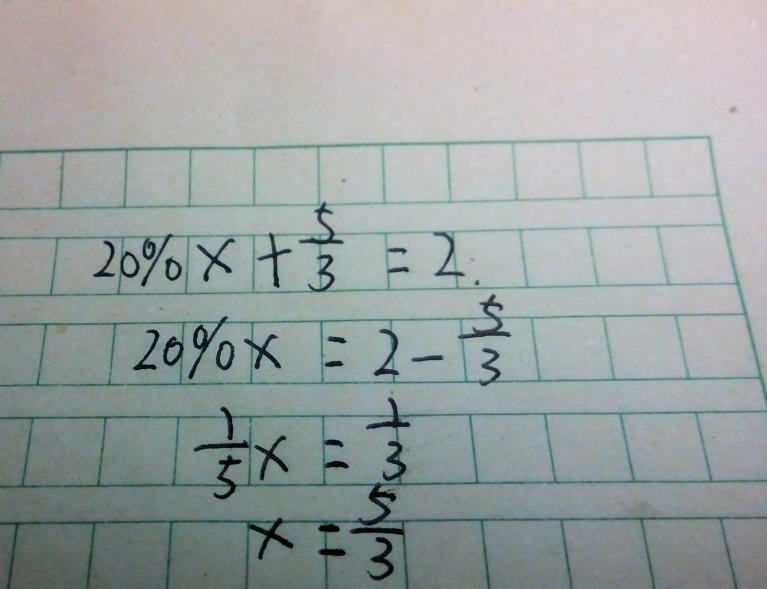 20%x + 5/3 = 2.
20%x = 2 - 5/3
1/5 x = 1/3
x = 5/3